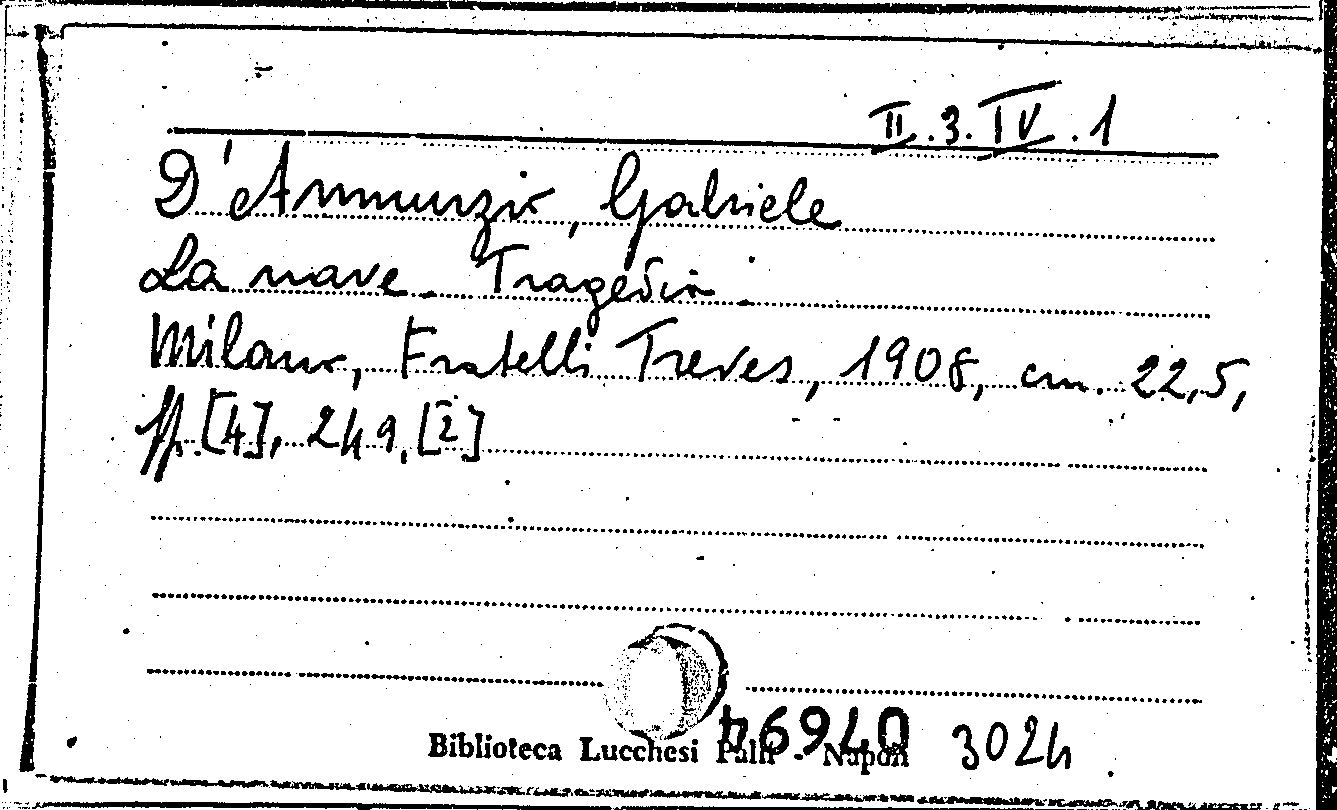 II.3.IV.1
D'Annunzio, Gabriele
La nave. Tragedia.
Milano, Fratelli Treves, 1908, cm. 22,5,
pp. [4], 249, [2]
3024
Biblioteca Lucchesi Palli - Napoli